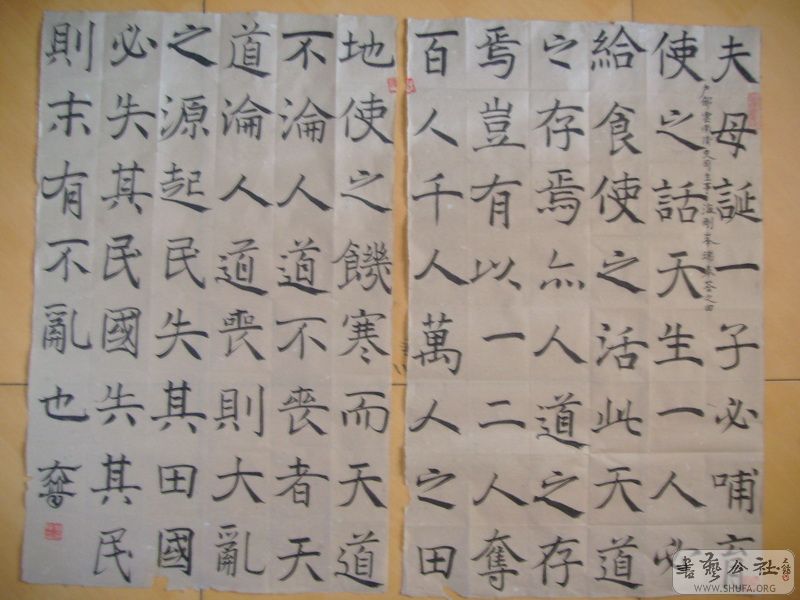 夫母誕一子必哺育
戶部雲南清吏司主事海剛峯瑞奏荅之曰
使之話天生一人必
給食使之活此天道
之存焉亦人道之存
焉豈有以一二人奪
百人千人萬人之田
地使之饑寒而天道
不淪人道不喪者天
道淪人道喪則大亂
之源起民失其田國
必失其民國失其民
則未有不亂也
書藝公社
WWW.SHUFA.ORG